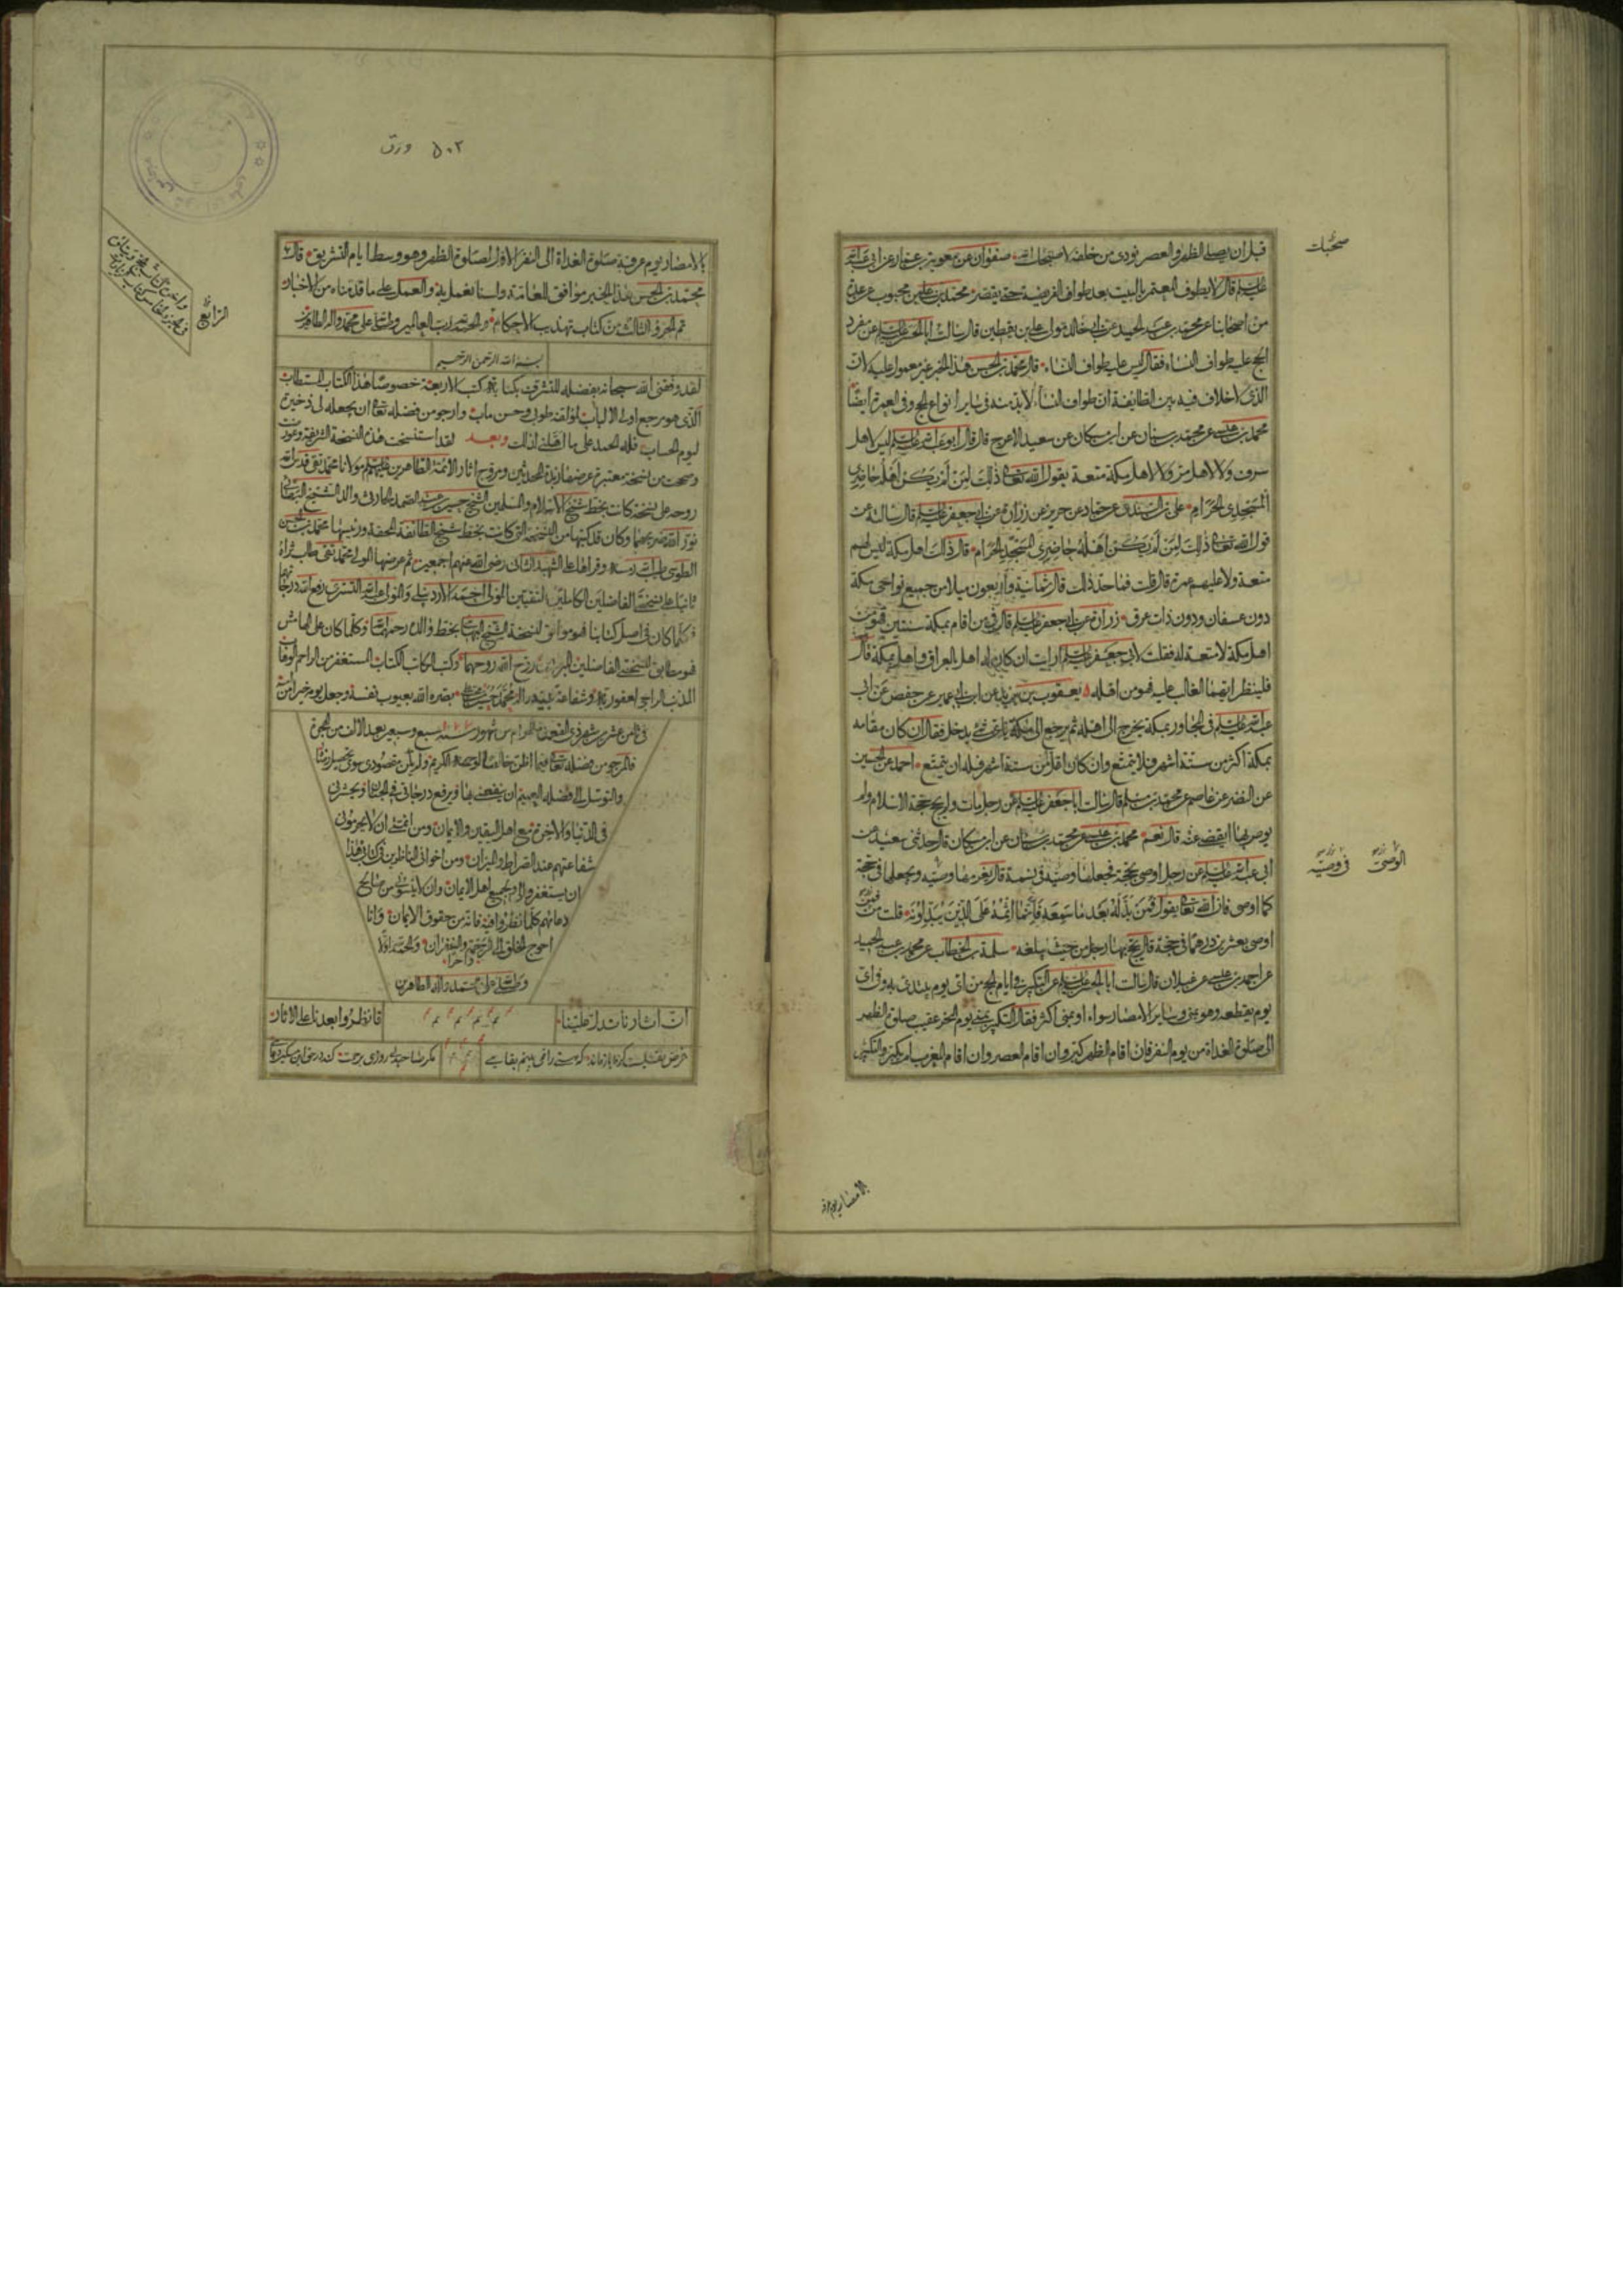 قبل ان يصلى الظهر والعصر نودى من خلفه لا صبحك الله صفوان عن معوية بن عمار عن ابى عبد الله
عليه السلم قال لا يطوف المعتمر بالبيت بعد طواف الفريضة حتى يقصر محمد بن على بن محبوب عن عدة
من اصحابنا عن محمد بن عبد الحميد عن ابى خالد مولى على بن يقطين قال سالت ابا الحسن عليه السلم عن مفرد
الحج عليه طواف النساء فقال ليس عليه طواف النساء قال محمد بن الحسن هذا الخبر غير معمول عليه لان
الذى لا خلاف فيه بين الطايفة ان طواف النساء لا بد منه فى ساير انواع الحج وفى العمرة ايضا
محمد بن عن محمد بن سنان عن ابن مسكان عن سعيد الاعرج قال قال ابو عبد الله عليه السلم ليس لاهل
سرف ولا لاهل مر ولا لاهل مكة متعة يقول الله تعالى ذلك لمن لم يكن اهله حاضرى
المسجد الحرام على بن السندى عن حماد عن حريز عن زرارة عن ابى جعفر عليه السلم قال سالته عن
قول الله تعالى ذلك لمن لم يكن اهله حاضرى المسجد الحرام قال ذلك اهل مكة ليس لهم
متعة ولا عليهم عمرة قال قلت فما حد ذلك قال ثمانية واربعون ميلا من جميع نواحى مكة
دون عسفان ودون ذات عرق زرارة عن ابى جعفر عليه السلم قال من اقام بمكة سنتين فهو من
اهل مكة لا متعة له فقلت لابى جعفر عليه السلم ارايت ان كان له اهل بالعراق واهل بمكة قال
فلينظر ايهما الغالب عليه فهو من اهله يعقوب بن يزيد عن ابن ابى عمير عن حفص عن ابى
عبد الله عليه السلم فى المجاور بمكة يخرج الى اهله ثم يرجع الى مكة باى شئ يدخل فقال ان كان مقامه
بمكة اكثر من ستة اشهر فلا يتمتع وان كان اقل من ستة اشهر فله ان يتمتع احمد عن الحسين
عن النضر عن عاصم عن محمد بن مسلم قال سالت ابا جعفر عليه السلم عن رجل مات ولم يحج حجة الاسلام ولم
يوص بها ايقضى عنه قال نعم محمد بن عن محمد بن سنان عن ابن مسكان قال حدثنى سعيد عن
ابى عبد الله عليه السلم عن رجل اوصى بحجة فجعلها وصيه فى نسمة قال يغرمها وصيه ويجعلها فى حجة
كما اوصى فان الله تعالى يقول فمن بدله بعد ما سمعه فانما اثمه على الذين يبدلونه قلت فمن
اوصى بعشرين درهما فى حجة قال يحج بها رجل من حيث يبلغه سلمة بن الخطاب عن محمد بن عبد الحميد
عن احمد بن عن غيلان قال سالت ابا الحسن عليه السلم عن التكبير فى ايام الحج من اى يوم يبتدئ به وفى اى
يوم يقطعه وهو بمنى وساير الامصار سواء او بمنى اكثر فقال التكبير بمنى يوم النحر عقيب صلوة الظهر
الى صلوة الغداة من يوم النفر فان اقام الظهر كبر وان اقام العصر وان اقام المغرب لم يكبر والتكبير
صحبك
الوصى فى وصيته
بالامصار يوم عرفة
٥٠٢ ورق
بالامصار يوم عرفة صلوة الغداة الى النفر الاول صلوة الظهر وهو وسط ايام التشريق قال
محمد بن الحسن هذا الخبر موافق للعامة ولسنا نعمل به والعمل على ما قدمناه من الاخبار
تم الجزء الثالث من كتاب تهذيب الاحكام والحمد لله رب العالمين وصلى الله على محمد واله الطاهرين
بسم الله الرحمن الرحيم
لقد وفقنى الله سبحانه بفضله للتشرف بكتابة كتب الاربعة خصوصا هذا الكتاب المستطاب
الذى هو مرجع اولى الالباب لمؤلفه طوبى وحسن ماب وارجو من فضله تعالى ان يجعله لى ذخيرة
ليوم الحساب فله الحمد على ما اهلنى لذلك وبعد لقد استنسخت هذه النسخة الشريفة
وصححت من نسخة معتبرة عرضها زبدة المحدثين ومروج اثار الائمة الطاهرين عليهم السلم مولانا محمد تقى قدس الله
روحه على نسخة كانت بخط شيخ الاسلام والمسلمين الشيخ حسين بن عبد الصمد الحارثى والد الشيخ البهائى
نور الله ضريحهما وكان قد كتبها من النسخة التى كانت بخط شيخ الطائفة المحقة ورئيسها محمد بن الحسن
الطوسى طيب الله رمسه وقراها على الشهيد الثانى رضى الله عنهم اجمعين ثم عرضها المولى محمد تقى طاب ثراه
ثانيا على نسختى الفاضلين الكاملين التقيين المولى احمد الاردبيلى والمولى عبد الله التسترى رفع الله درجاتهما
فكلما كان فى اصل كتابنا فهو موافق لنسخة الشيخ البهائى بخط والده رحمهما الله وكلما كان على الهامش
فهو مطابق لنسختى الفاضلين روح الله روحهما وكتب الكاتب الكتاب المستغفر من الراحم
المذنب الراجى لعفو ربه وشفاعة نبيه واله محمد بصره الله بعيوب نفسه وجعل يومه خيرا من امسه
فى ثامن عشر من شهر ذى القعدة الحرام من شهور سنة سبع وسبعين بعد الالف من الهجرة
فالمرجو من فضله تعالى فيما اظن خالصا لوجهه الكريم ولم يكن مقصودى سوى تحصيل رضاه
والتوسل الى فضله العميم ان ينفعنى بها ويرفع درجاتى فى الجنان ويحشرنى
فى الدنيا والاخرة مع اهل اليقين والايمان ومن ائمتى ان لا يحرمونى
شفاعتهم عند الصراط والميزان ومن اخوانى الناظرين فى كتابى هذا
ان يستغفروا لى ولجميع اهل الايمان وان لا ينسونى من صالح
دعائهم كلما نظروا فيه فانه من حقوق الايمان وانا
احوج الخلق الى الرحمة والغفران والحمد لله اولا
واخرا
وصلى الله على محمد واله الطاهرين
ان اثارنا تدل علينا فانظروا بعدنا على الاثار
غرض نقشيست كز ما باز ماند كه هستى را نمى بينم بقايى مگر صاحبدلى روزى برحمت كند در حق اين مسكين دعايى
الرابع